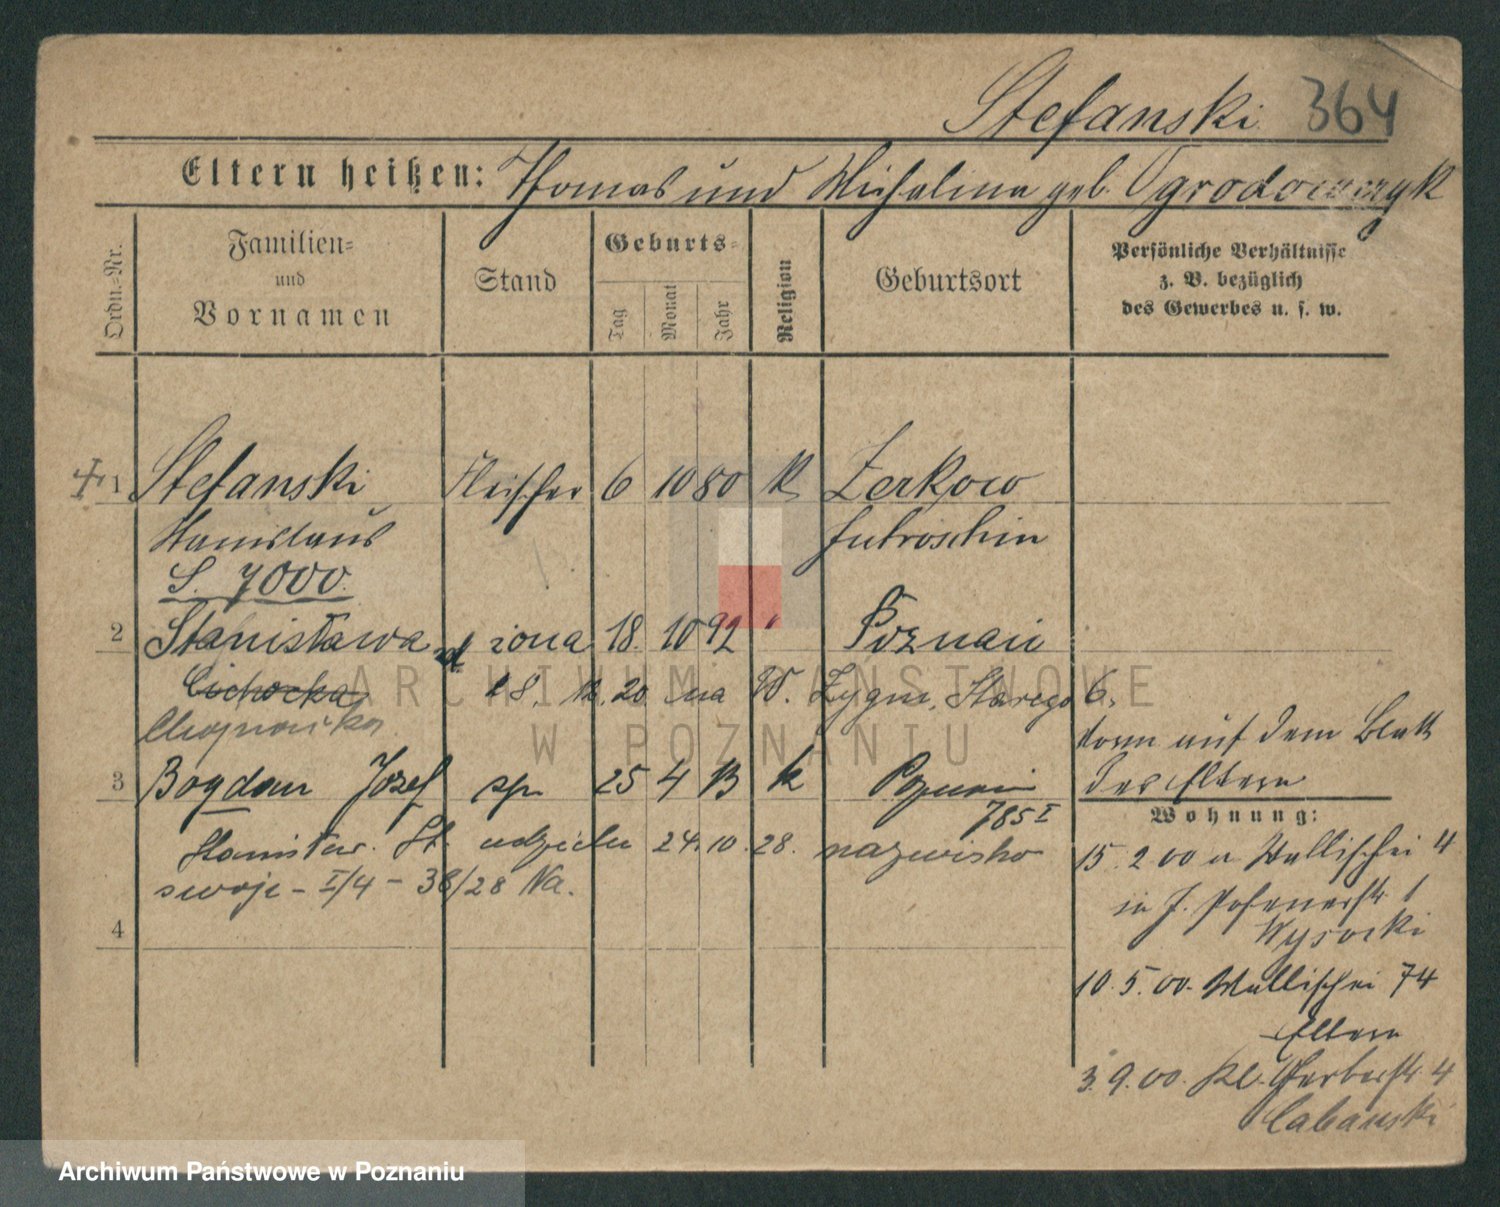 Stefanski 364
Eltern heißen: Thomas und Michalina geb. Ogrodowczyk
Ordn.-Nr.
Familien- und Vornamen
Stand
Geburts-
Tag Monat Jahr
Religion
Geburtsort
Persönliche Verhältnisse
z. B. bezüglich
des Gewerbes u. s. w.
1 Stefanski Fleischer 6 10 80 k Zerkow
Stanislaus Jutroschin
S. 7000.
2 Stanisława żona 18. 10 92 " Poznań
Cichocka 20 na W. Zygm. Starego 6.
Chojnacka
vorn auf dem Blatt
der Eltern
3 Bogdan Józef sp. 25 4 13 k Poznań
785 I
Wohnung:
Stanisław St. udzielił 24. 10. 28. nazwisko
swoje - I/4 - 38/28 Na.
15. 2 00 a Wallischei 4
in J. Posenerstr 1
Wysocki
4
10. 5. 00. Wallischei 74
Eltern
3. 9. 00. Kl. Gerberstr. 4
Cabanski
ARCHIWUM PAŃSTWOWE
W POZNANIU
Archiwum Państwowe w Poznaniu